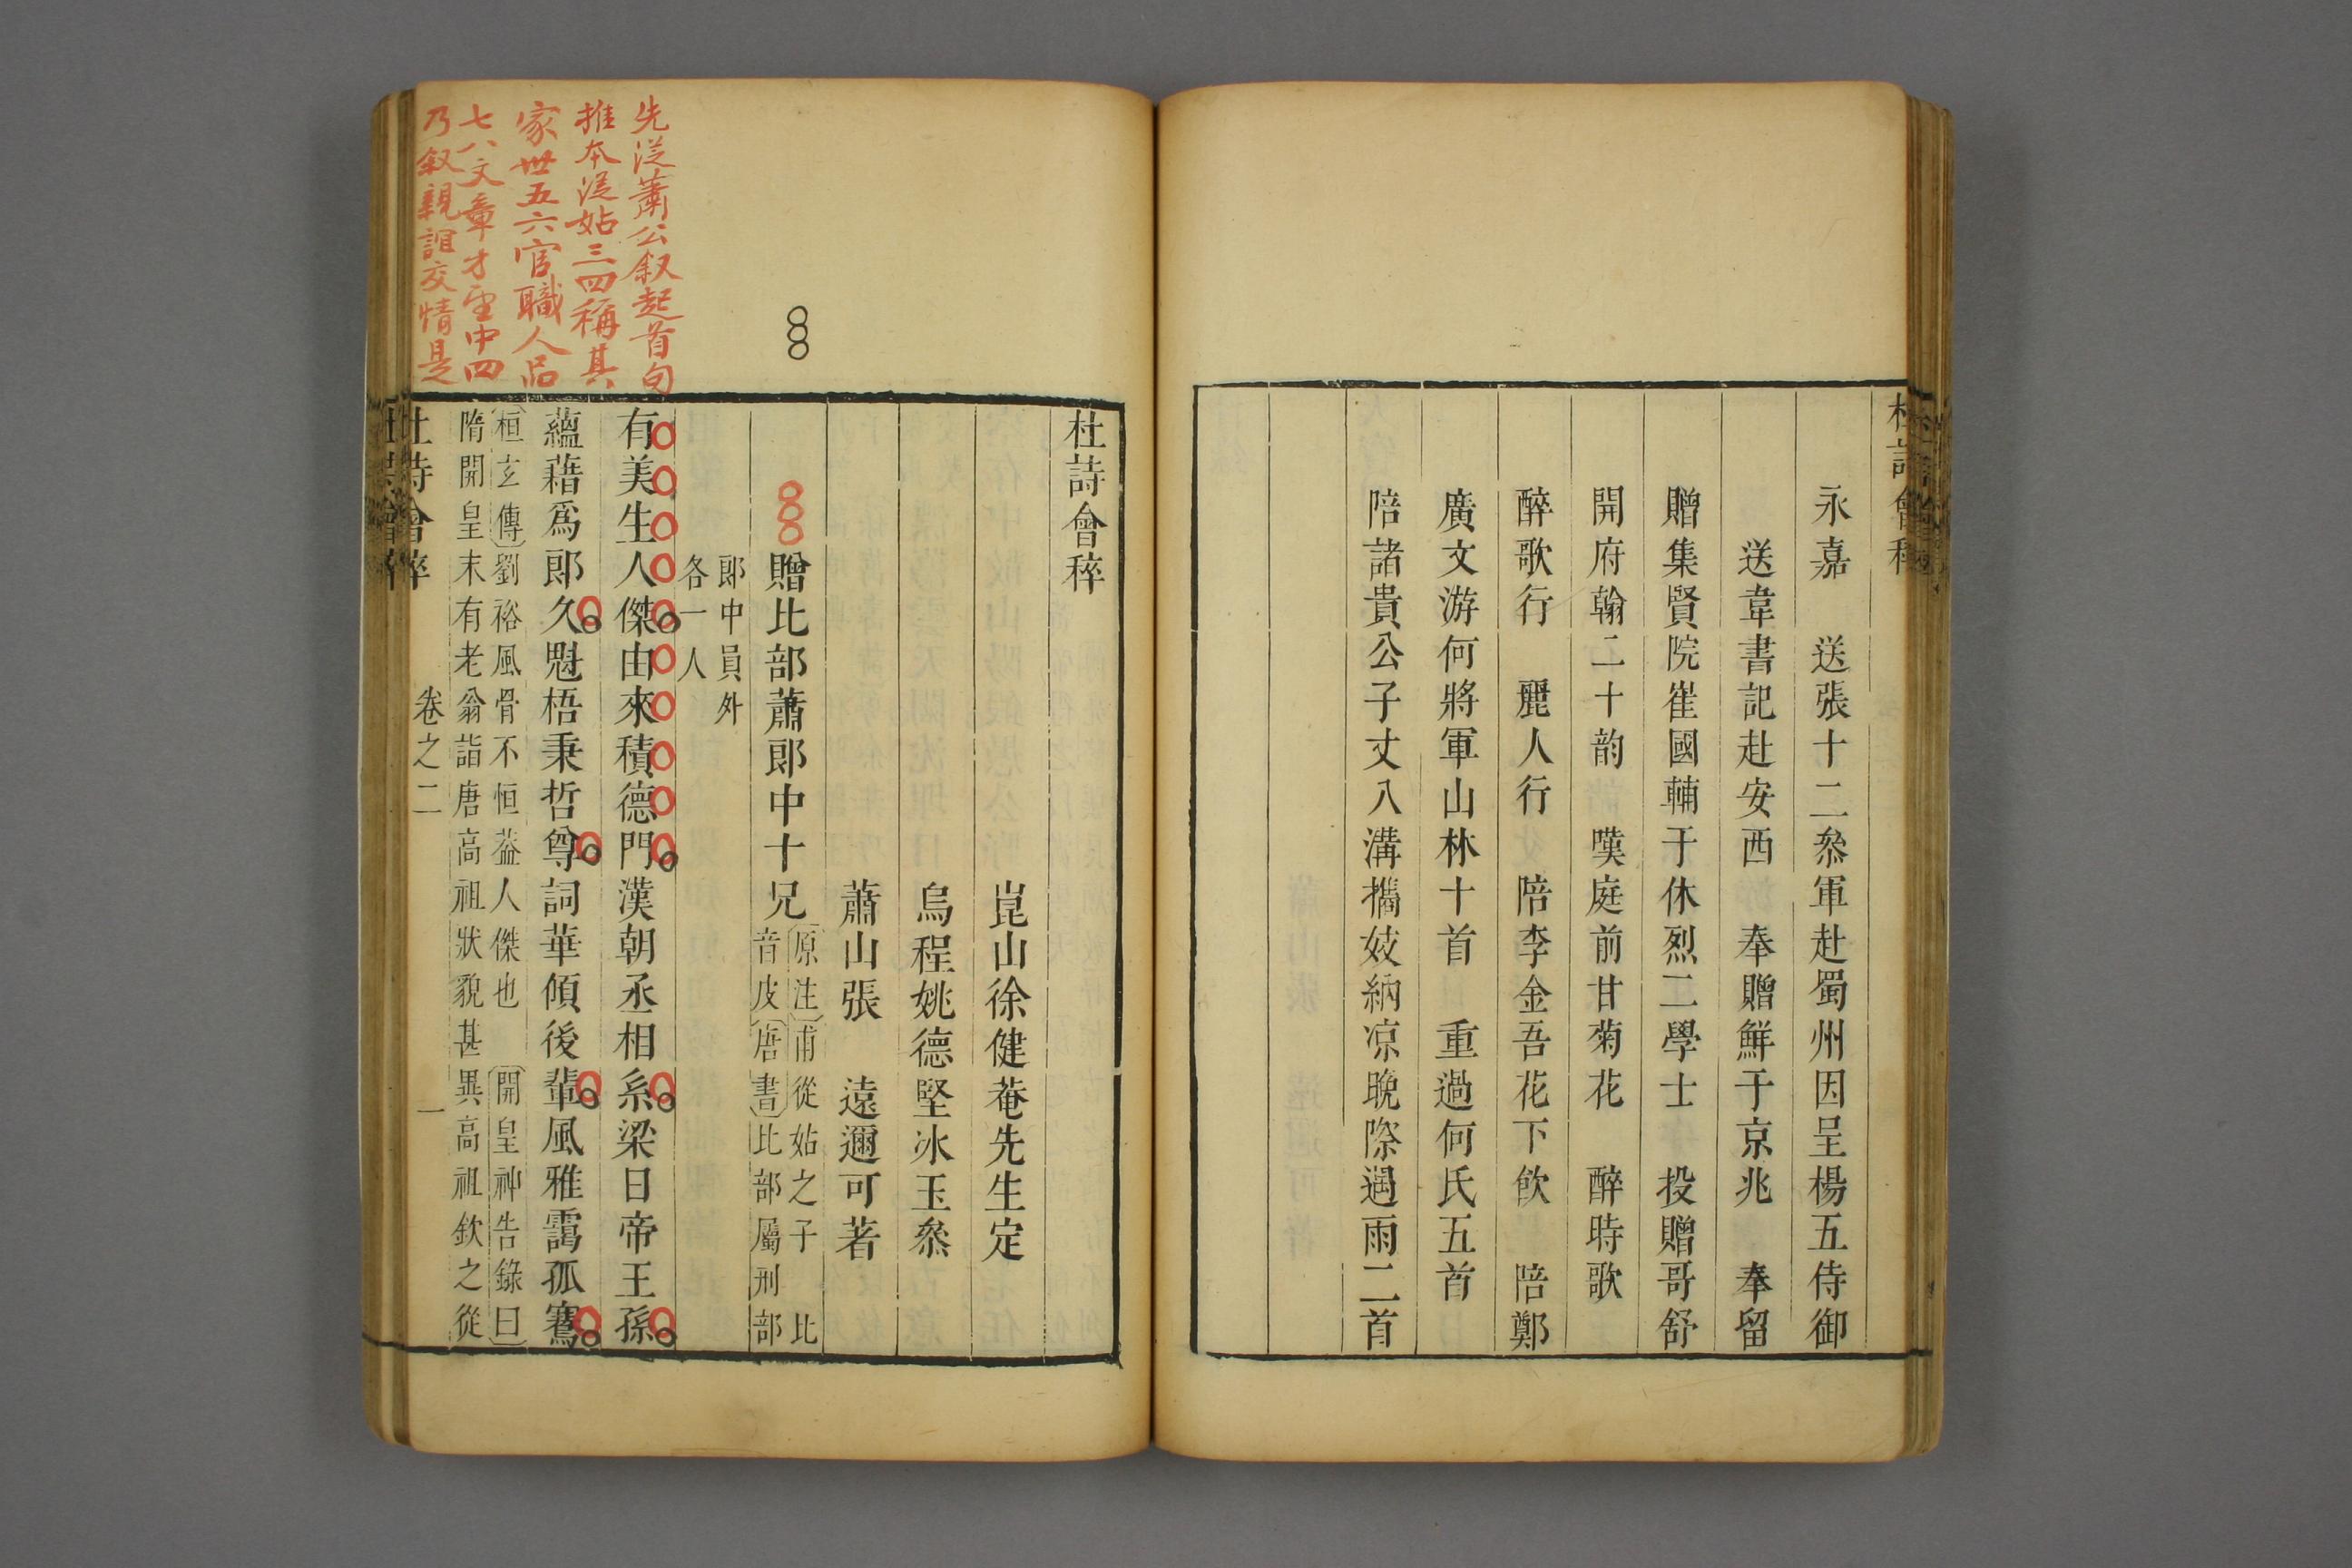 永嘉　送張十二叅軍赴蜀州因呈楊五侍御
送韋書記赴安西　奉贈鮮于京兆　奉留
贈集賢院崔國輔于休烈二學士　投贈哥舒
開府翰二十韵　嘆庭前甘菊花　醉時歌
醉歌行　麗人行　陪李金吾花下飲　陪鄭
廣文游何將軍山林十首　重過何氏五首
陪諸貴公子丈八溝攜妓納凉晚際遇雨二首
杜詩會稡
崑山徐健菴先生定
烏程姚德堅冰玉叅
蕭山張　遠邇可著
贈比部蕭郎中十兄
原注甫從姑之子　比
音皮唐書比部屬刑部
郎中員外
各一人
有美生人傑由來積德門漢朝丞相系梁日帝王孫
蘊藉爲郎久魁梧秉哲尊詞華傾後輩風雅靄孤鶱
桓玄傳劉裕風骨不恒葢人傑也　開皇神告錄曰
隋開皇末有老翁詣唐高祖狀貌甚異高祖欽之從
卷之二
一
先從蕭公叙起首句
推本從姑三四稱其
家世五六官職人品
七八文章才望中四
乃叙親誼交情是